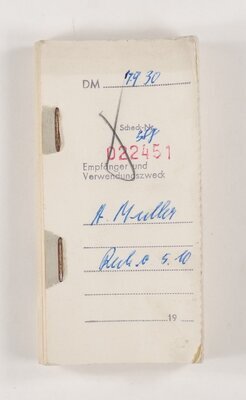 DM 79 30
Scheck-Nr.
022451
Empfänger und
Verwendungszweck
A. Muller
5. 10
19